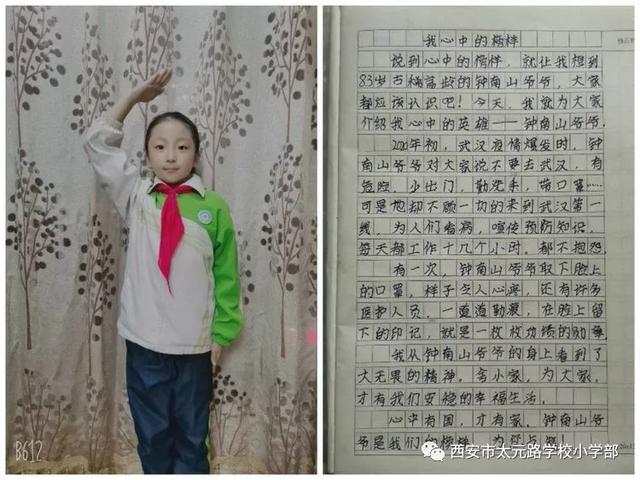 我心中的榜样
说到心中的榜样，就让我想到
83岁古稀高龄的钟南山爷爷，大家
都应该认识吧！今天，我就为大家
介绍我心中的英雄——钟南山爷爷。
2020年初，武汉疫情爆发时，钟
南山爷爷对大家说不要去武汉，有
危险，少出门，勤洗手，带口罩……
可是他却不顾一切的来到武汉第一
线，为人们看病，宣传预防知识，
每天都工作十几个小时，都不抱怨。
有一次，钟南山爷爷取下脸上
的口罩，样子令人心疼，还有许多
医护人员，一道道勒痕，在脸上留
下的印记，就是一枚枚功绩的勋章。
我从钟南山爷爷的身上看到了
大无畏的精神，舍小家，为大家，
才有我们安稳的幸福生活。
心中有国，才有家，钟南山爷
爷是我们的榜样，为他点赞！
B612
西安市太元路学校小学部